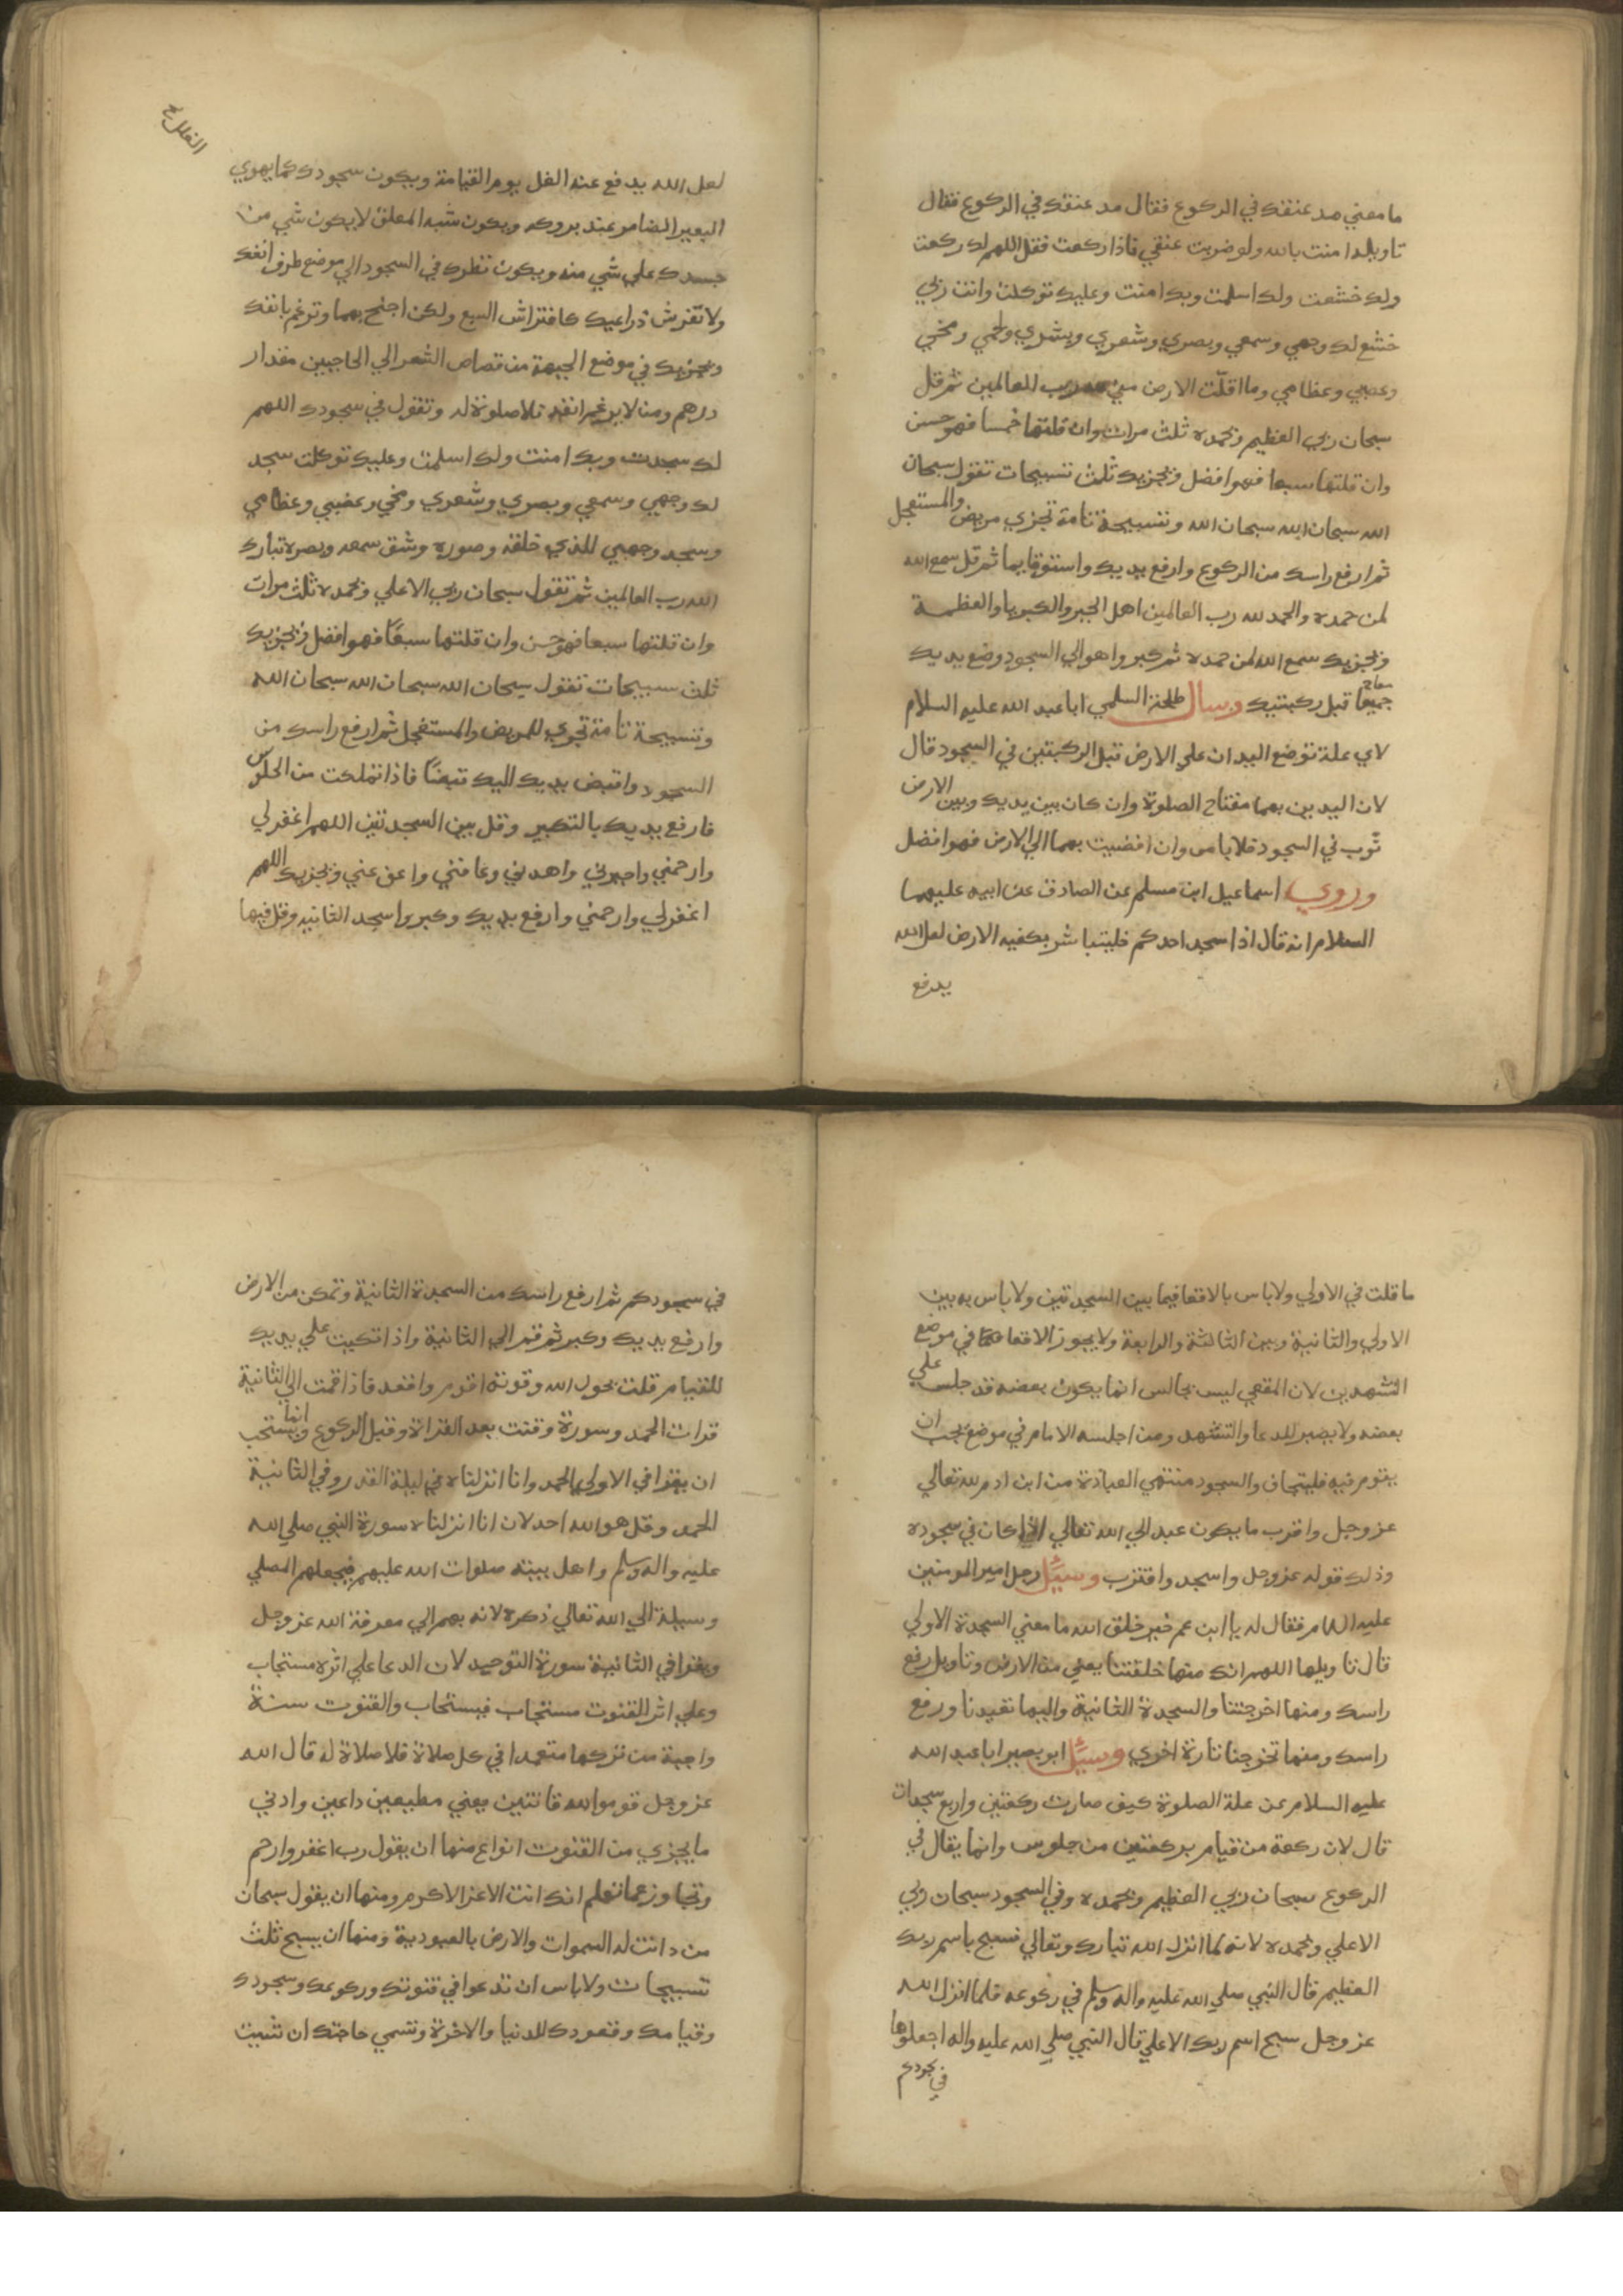 ما معني مد عنقك في الركوع فقال مد عنقك في الركوع فقال
تاويله امنت بالله ولو ضربت عنقي فاذا ركعت فقل اللهم لك ركعت
ولك خشعت ولك اسلمت وبك امنت وعليك توكلت وانت ربي
خشع لك وجهي وسمعي وبصري وشعري وبشري ولحمي ومخي
وعصبي وعظامي وما اقلت الارض مني لله رب العالمين ثم قل
سبحان ربي العظيم وبحمده ثلث مرات وان قلتها خمسا فهو حسن
وان قلتها سبعا فهو افضل ويجزيك ثلث تسبيحات تقول سبحان
الله سبحان الله سبحان الله وتسبيحة تامة تجزي مريض والمستعجل
ثم ارفع راسك من الركوع وارفع يديك واستو قايما ثم قل سمع الله
لمن حمده والحمد لله رب العالمين اهل الجبر والكبريا والعظمة
ويجزيك سمع الله لمن حمده ثم كبر واهو الي السجود وضع يديك
جميعا معا قبل ركبتيك وسال طلحة السلمي ابا عبد الله عليه السلام
لاي علة توضع اليدان علي الارض قبل الركبتين في السجود قال
لان اليدين بهما مفتاح الصلوة وان كان بين يديك وبين الارض
ثوب في السجود فلا باس وان افضيت بهما الي الارض فهو افضل
وروي اسماعيل ابن مسلم عن الصادق عن ابيه عليهما
السلام انه قال اذا سجد احدكم فليتباشر بكفيه الارض لعل الله
يدفع
الغلل
لعل الله يدفع عنه الغل يوم القيامة ويكون سجودك كما يهوي
البعير الضامر عند بروكه ويكون شبه المعلق لا يكون شي من
جسدك علي شي منه ويكون نظرك في السجود الي موضع طرف انفك
ولا تفرش ذراعيك كافتراش السبع ولكن اجنح بهما وترغم بانفك
ويجزيك في موضع الجبهة من قصاص الشعر الي الحاجبين مقدار
درهم ومن لا يرغم انفه فلا صلوة له وتقول في سجودك اللهم
لك سجدت وبك امنت ولك اسلمت وعليك توكلت سجد
لك وجهي وسمعي وبصري وشعري ومخي وعصبي وعظامي
وسجد وجهي للذي خلقه وصوره وشق سمعه وبصره تبارك
الله رب العالمين ثم تقول سبحان ربي الاعلي وبحمده ثلث مرات
وان قلتها سبعا فهو حسن وان قلتها سبعًا فهو افضل ويجزيك
ثلث سبيحات تقول سبحان الله سبحان الله سبحان الله
وتسبيحة تامة تجزي للمريض والمستعجل ثم ارفع راسك من
السجود واقبض يديك اليك قبضًا فاذا تملكت من الجلوس
فارفع يديك بالتكبير وقل بين السجدتين اللهم اغفر لي
وارحمني واجبرني واهدني وعافني واعف عني ويجزيك اللهم
اغفر لي وارحمني وارفع يديك وكبر واسجد الثانيه وقل فيها
ما قلت في الاولي ولا باس بالاقعا فيما بين السجدتين ولا باس به بين
الاولي والثانية وبين الثالثة والرابعة ولا يجوز الاقعا في موضع
التشهدين لان المقعي ليس بجالس انما يكون بعضه قد جلس علي
بعضه ولا يصير للدعا والتشهد ومن اجلسه الامام في موضع يجب ان
يقوم فيه فليتجاف والسجود منتهي العبادة من ابن ادم لله تعالي
عز وجل واقرب ما يكون عبد الي الله تعالي اذا كان في سجوده
وذلك قوله عز وجل واسجد واقترب وسيل رجل امير المومنين
عليه السلام فقال له يا ابن عم خير خلق الله ما معني السجدة الاولي
قال تاويلها اللهم انك منها خلقتنا يعني من الارض وتاويل رفع
راسك ومنها اخرجتنا والسجدة الثانية واليها تعيدنا ورفع
راسك ومنها تخرجنا تارة اخري وسيل ابو بصير ابا عبد الله
عليه السلام عن علة الصلوة كيف صارت ركعتين واربع سجدات
قال لان ركعة من قيام بركعتين من جلوس وانما يقال في
الركوع سبحان ربي العظيم وبحمده وفي السجود سبحان ربي
الاعلي وبحمده لانه لما انزل الله تبارك وتعالي فسبح باسم ربك
العظيم قال النبي صلي الله عليه واله وسلم في ركوعه فلما انزل الله
عز وجل سبح اسم ربك الاعلي قال النبي صلي الله عليه واله اجعلوها
في سجودكم
في سجودكم ثم ارفع راسك من السجدة الثانية وتمكن من الارض
وارفع يديك وكبر ثم قم الي الثانية واذا تكيت علي يديك
للقيام قلت بحول الله وقوته اقوم واقعد فاذا قمت الي الثانية
قرات الحمد وسورة وقنت بعد القراة وقبل الركوع وانما يستحب
ان يقرا في الاولي الحمد وانا انزلناه في ليلة القدر وفي الثانية
الحمد وقل هو الله احد لان انا انزلناه سورة النبي صلي الله
عليه واله وسلم واهل بيته صلوات الله عليهم فيجعلهم المصلي
وسيلة الي الله تعالي ذكره لانه بهم الي معرفة الله عز وجل
ويقرا في الثانية سورة التوحيد لان الدعا علي اثره مستجاب
وعلي اثر القنوت مستجاب فيستجاب والقنوت سنة
واجبة من تركها متعمدا في كل صلاة فلا صلاة له قال الله
عز وجل قوموا لله قانتين يعني مطيعين داعين وادني
ما يجزي من القنوت انواع منها ان يقول رب اغفر وارحم
وتجاوز عما تعلم انك انت الاعز الاكرم ومنها ان يقول سبحان
من دانت له السموات والارض بالعبودية ومنها ان يسبح ثلث
تسبيحات ولا باس ان تدعوا في قنوتك وركوعك وسجودك
وقيامك وقعودك للدنيا والاخرة وتسمي حاجتك ان شيت